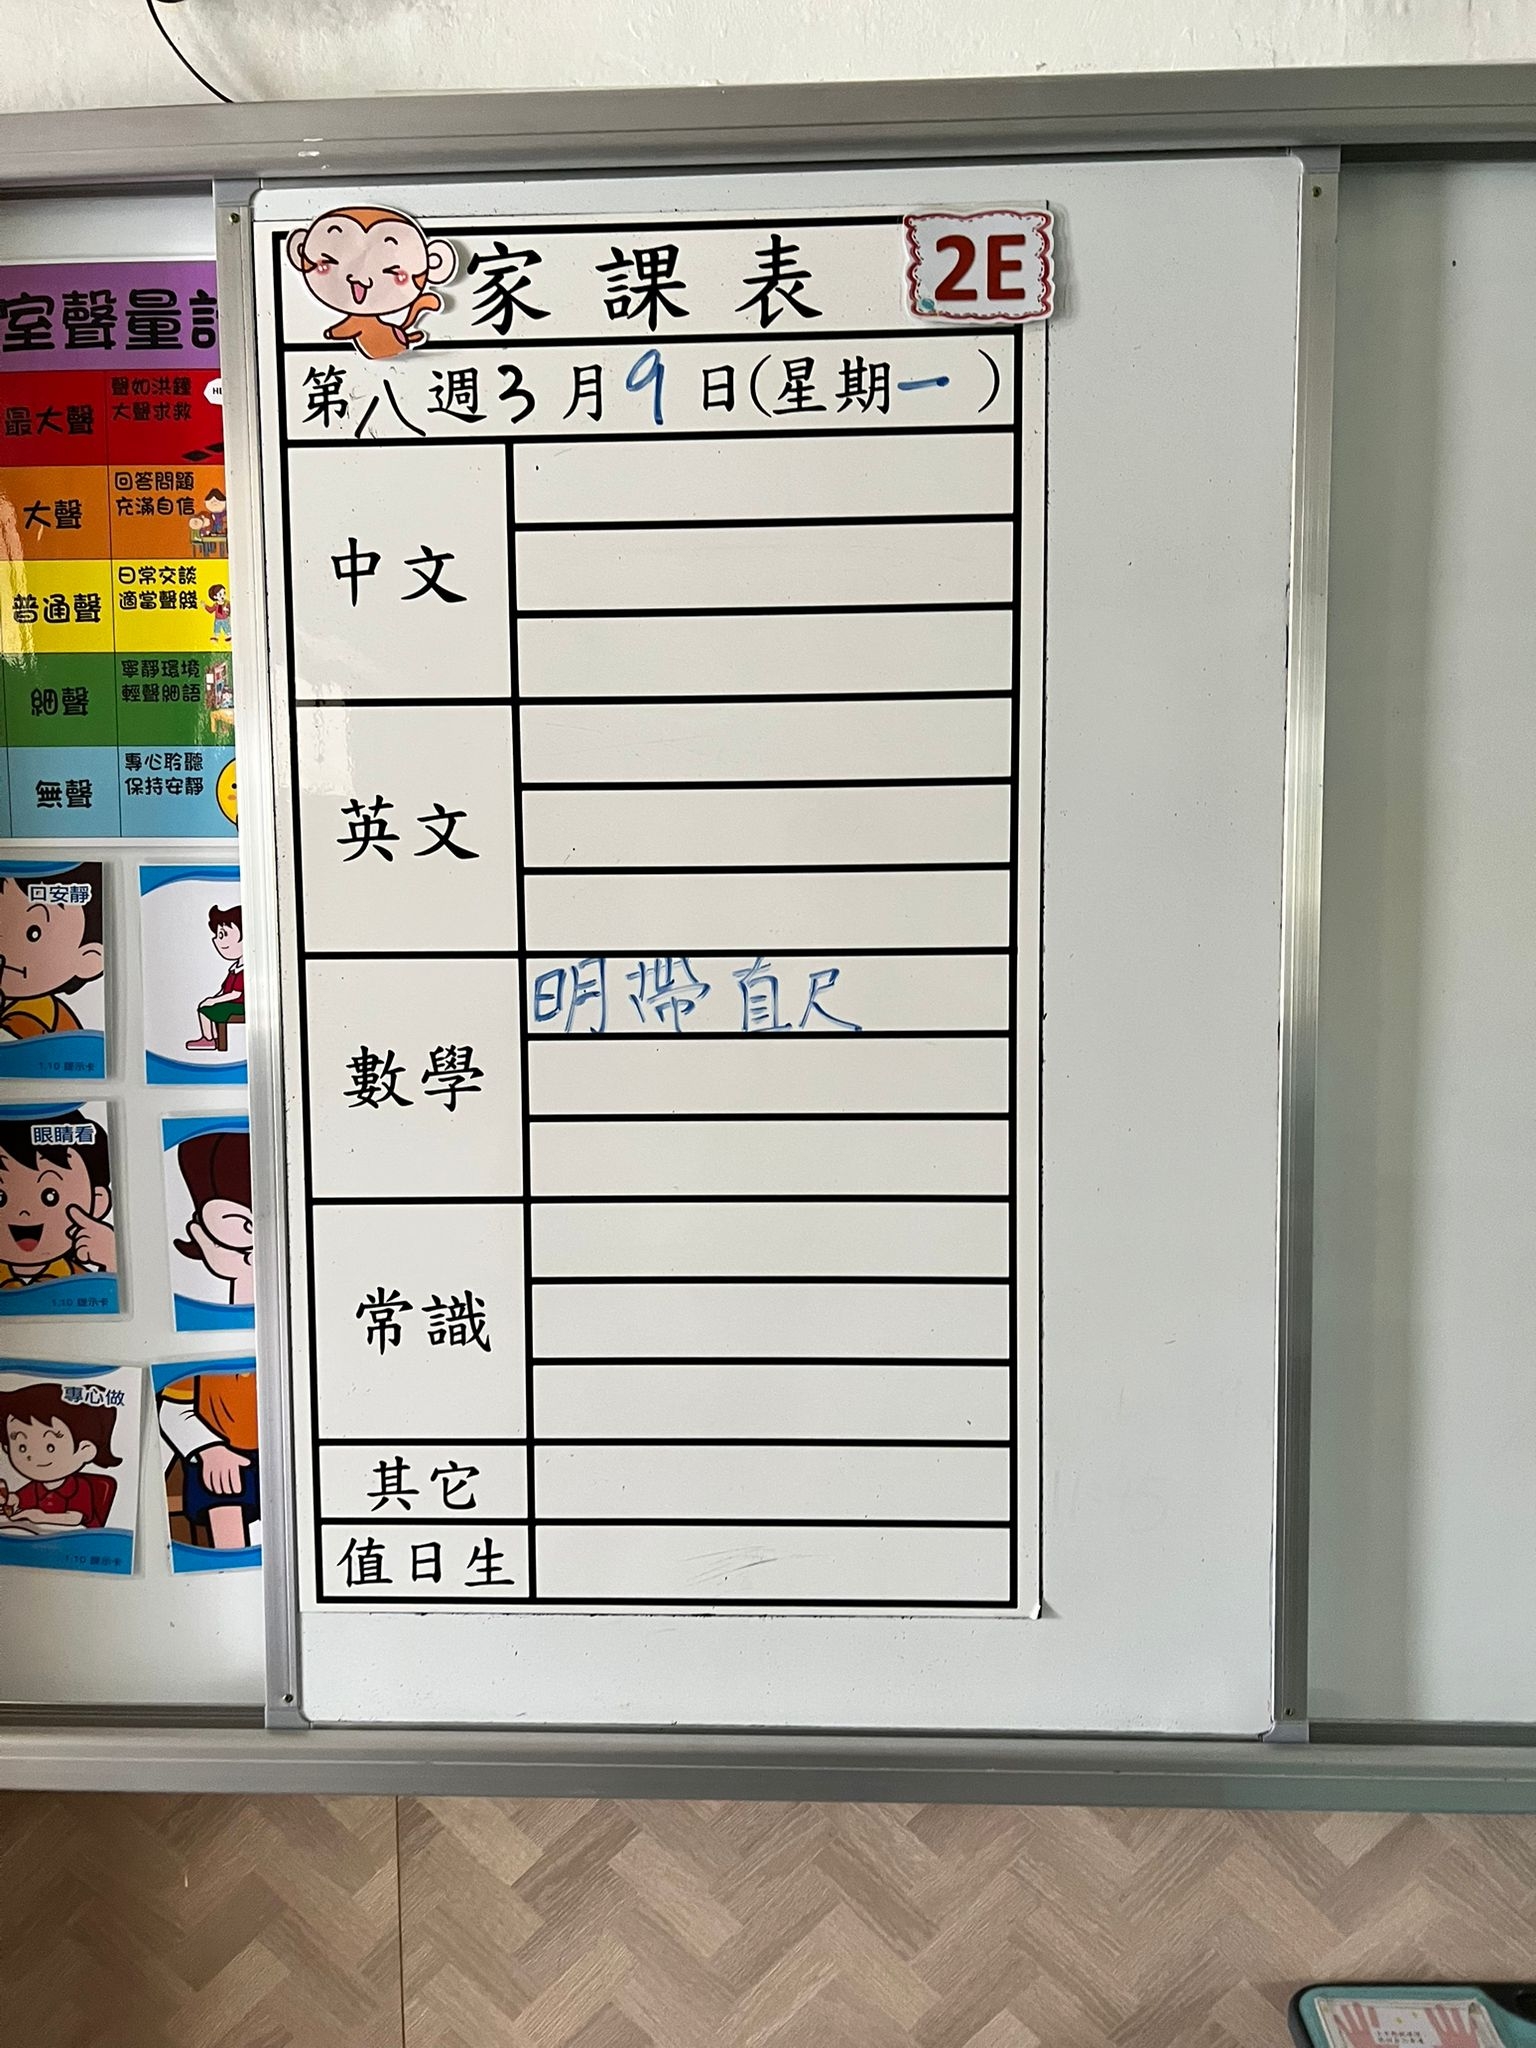 家課表
2E
第八週3月9日(星期一)
中文
英文
數學
明帶直尺
常識
其它
值日生
室聲量計
最大聲
聲如洪鐘
大聲求救
大聲
回答問題
充滿自信
普通聲
日常交談
適當聲綫
細聲
寧靜環境
輕聲細語
無聲
專心聆聽
保持安靜
口安靜
1.10 提示卡
眼睛看
1.10 提示卡
專心做
1.10 提示卡